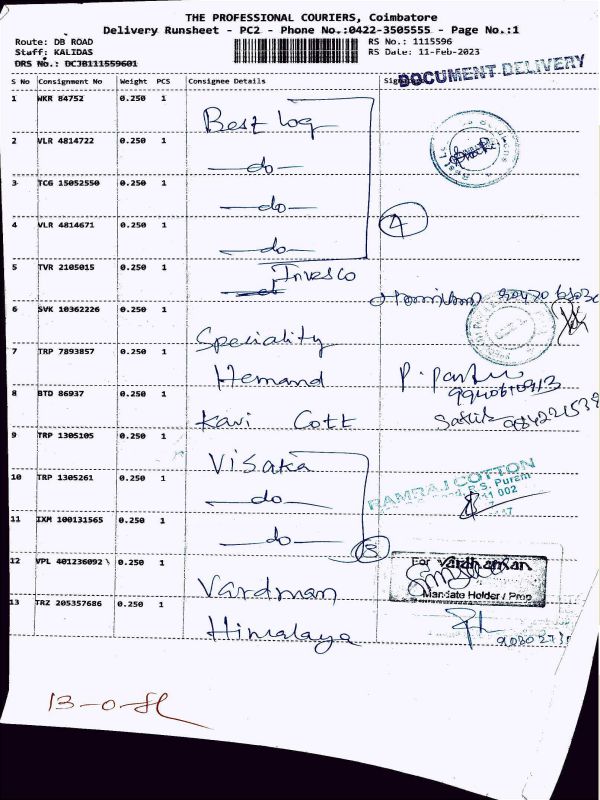 THE PROFESSIONAL COURIERS, Coimbatore
Delivery Runsheet - PC2 - Phone No.:0422-3505555 - Page No.:1
Route: DB ROAD
Staff: KALIDAS
DRS No.: DCJB111559601
RS No.: 1115596
RS Date: 11-Feb-2023
DOCUMENT DELIVERY
S No Consignment No Weight PCS Consignee Details
1 WKR 84752 0.250 1 Best log
2 VLR 4814722 0.250 1 —do—
3 TCG 15052550 0.250 1 —do—
4 VLR 4814671 0.250 1 —do—
4
5 TVR 2105015 0.250 1 Invesco
6 SVK 10362226 0.250 1 Speciality
7 TRP 7893857 0.250 1 Hemand
8 BTD 86937 0.250 1 Kavi Cott
9 TRP 1305105 0.250 1 Visaka
10 TRP 1305261 0.250 1 —do—
RAMRAJ COTTON
R.S. Puram
11 002
11 IXM 100131565 0.250 1 —do—
3
12 VPL 401236092 \ 0.250 1 Vardman
For Vardhaman
Mandate Holder / Prop
13 TRZ 205357686 0.250 1 Himalaya
13-0-